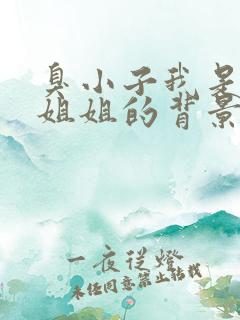 臭小子我是
姐姐的背景
一夜从灯
未经同意禁止转载